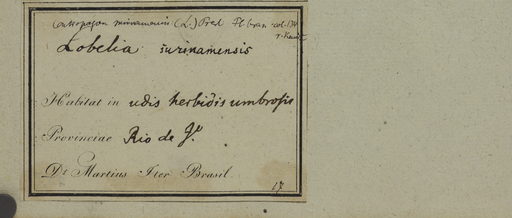 Centropogon surinamensis (L.) Presl Fl bras. col. 134
Lobelia surinamensis
Habitat in udis herbidis umbrosis
Provinciae Rio de Jº
Dr Martius Iter Brasil
17